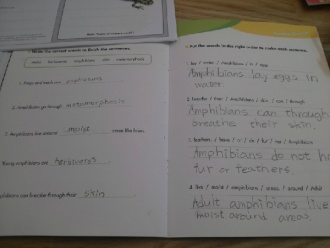 the correct words to finish the sentences.
1. Frogs and newts are amphibians
2. Amphibians go through metamorphosis
3. Amphibians live around moist areas like rivers.
4. Many amphibians are herbivores
5. Amphibians can breathe through their skin
Put the words in the right order to make each sentence.
1. lay / water / amphibians / in / eggs
Amphibians lay eggs in
water.
2. breathe / their / amphibians / skin / can / through
Amphibians can through
breaths their skin.
3. feathers / have / or / do / fur / not / Amphibians
Amphibians do not h
fur or feathers.
4. live / moist / amphibians / areas / around / Adult
Adult amphibians live
moist around areas.